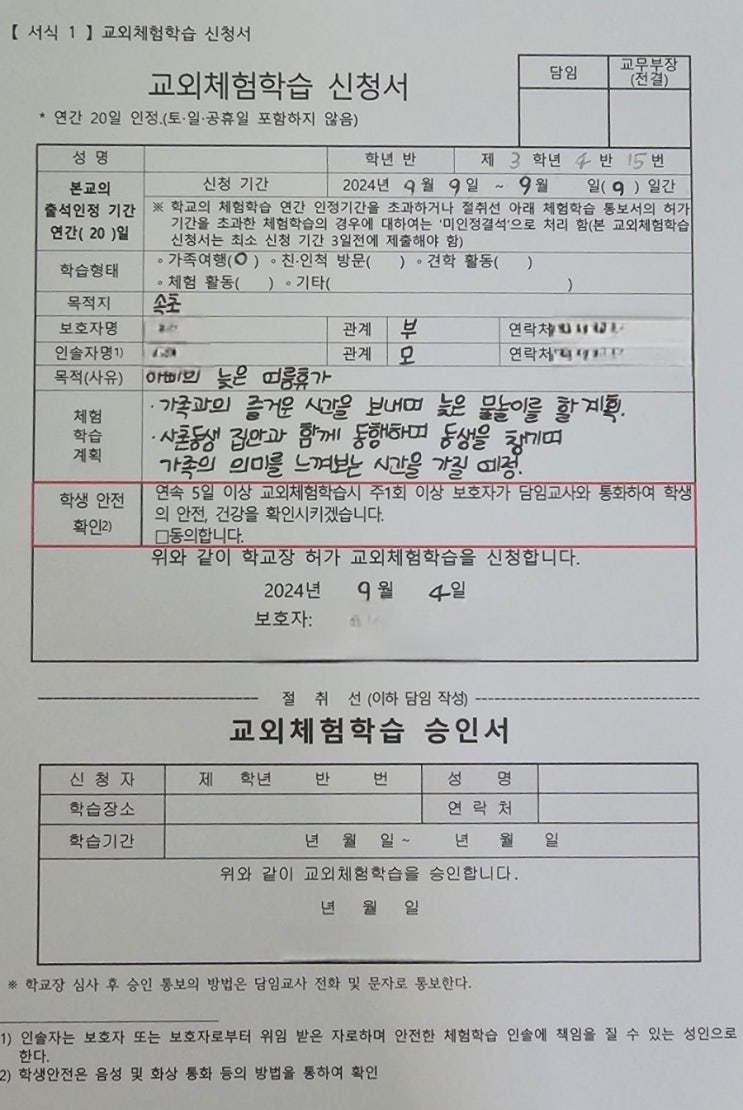 【 서식 1 】 교외체험학습 신청서
교외체험학습 신청서
담임
교무부장
(전결)
* 연간 20일 인정.(토·일·공휴일 포함하지 않음)
성 명
학년 반
제 3 학년 4 반 15 번
본교의
출석인정 기간
연간( 20 )일
신청 기간
2024년 9 월 9 일 ~ 9 월 일( 9 ) 일간
※ 학교의 체험학습 연간 인정기간을 초과하거나 절취선 아래 체험학습 통보서의 허가
기간을 초과한 체험학습의 경우에 대하여는 '미인정결석'으로 처리 함(본 교외체험학습
신청서는 최소 신청 기간 3일전에 제출해야 함)
학습형태
◦ 가족여행(O) ◦ 친·인척 방문( ) ◦ 견학 활동( )
◦ 체험 활동( ) ◦ 기타( )
목적지 속초
보호자명 관계 부 연락처
인솔자명1) 관계 모 연락처
목적(사유) 아빠의 늦은 여름휴가
체험
학습
계획
· 가족과의 즐거운 시간을 보내며 늦은 물놀이를 할 계획.
· 사촌동생 집안과 함께 동행하며 동생을 챙기며
가족의 의미를 느껴보는 시간을 가질 예정.
학생 안전
확인2)
연속 5일 이상 교외체험학습시 주1회 이상 보호자가 담임교사와 통화하여 학생
의 안전, 건강을 확인시키겠습니다.
□동의합니다.
위와 같이 학교장 허가 교외체험학습을 신청합니다.
2024년 9 월 4 일
보호자:
절 취 선 (이하 담임 작성)
교외체험학습 승인서
신 청 자 제 학년 반 번 성 명
학습장소 연 락 처
학습기간 년 월 일 ~ 년 월 일
위와 같이 교외체험학습을 승인합니다.
년 월 일
※ 학교장 심사 후 승인 통보의 방법은 담임교사 전화 및 문자로 통보한다.
1) 인솔자는 보호자 또는 보호자로부터 위임 받은 자로하며 안전한 체험학습 인솔에 책임을 질 수 있는 성인으로
한다.
2) 학생안전은 음성 및 화상 통화 등의 방법을 통하여 확인